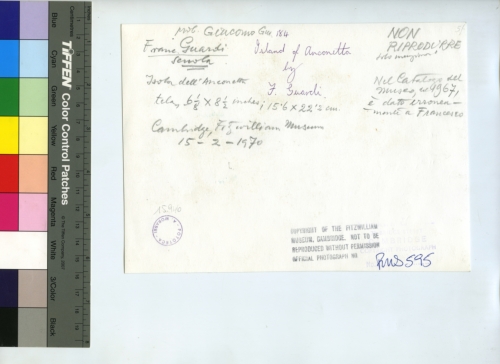 Giacomo Gu. 184
Franc Guardi
Scuola
Isola dell'Anconetta
tela, 6 1/8 X 8 1/2 inches; 15'6 X 22'2 cm.
Cambridge, Fitzwilliam Museum
15 - 2 - 1970
Island of Anconetta
by
F. Guardi
NON
RIPRODURRE
Nel Catalogo del
Museo, ed. 1967,
è dato erronea-
mente a Francesco
COPYRIGHT OF THE FITZWILLIAM
MUSEUM, CAMBRIDGE. NOT TO BE
REPRODUCED WITHOUT PERMISSION
OFFICIAL PHOTOGRAPH NO
RWS 595
TIFFEN Color Control Patches
Blue
Cyan
Green
Yellow
Red
Magenta
White
3/Color
Black
Centimetres